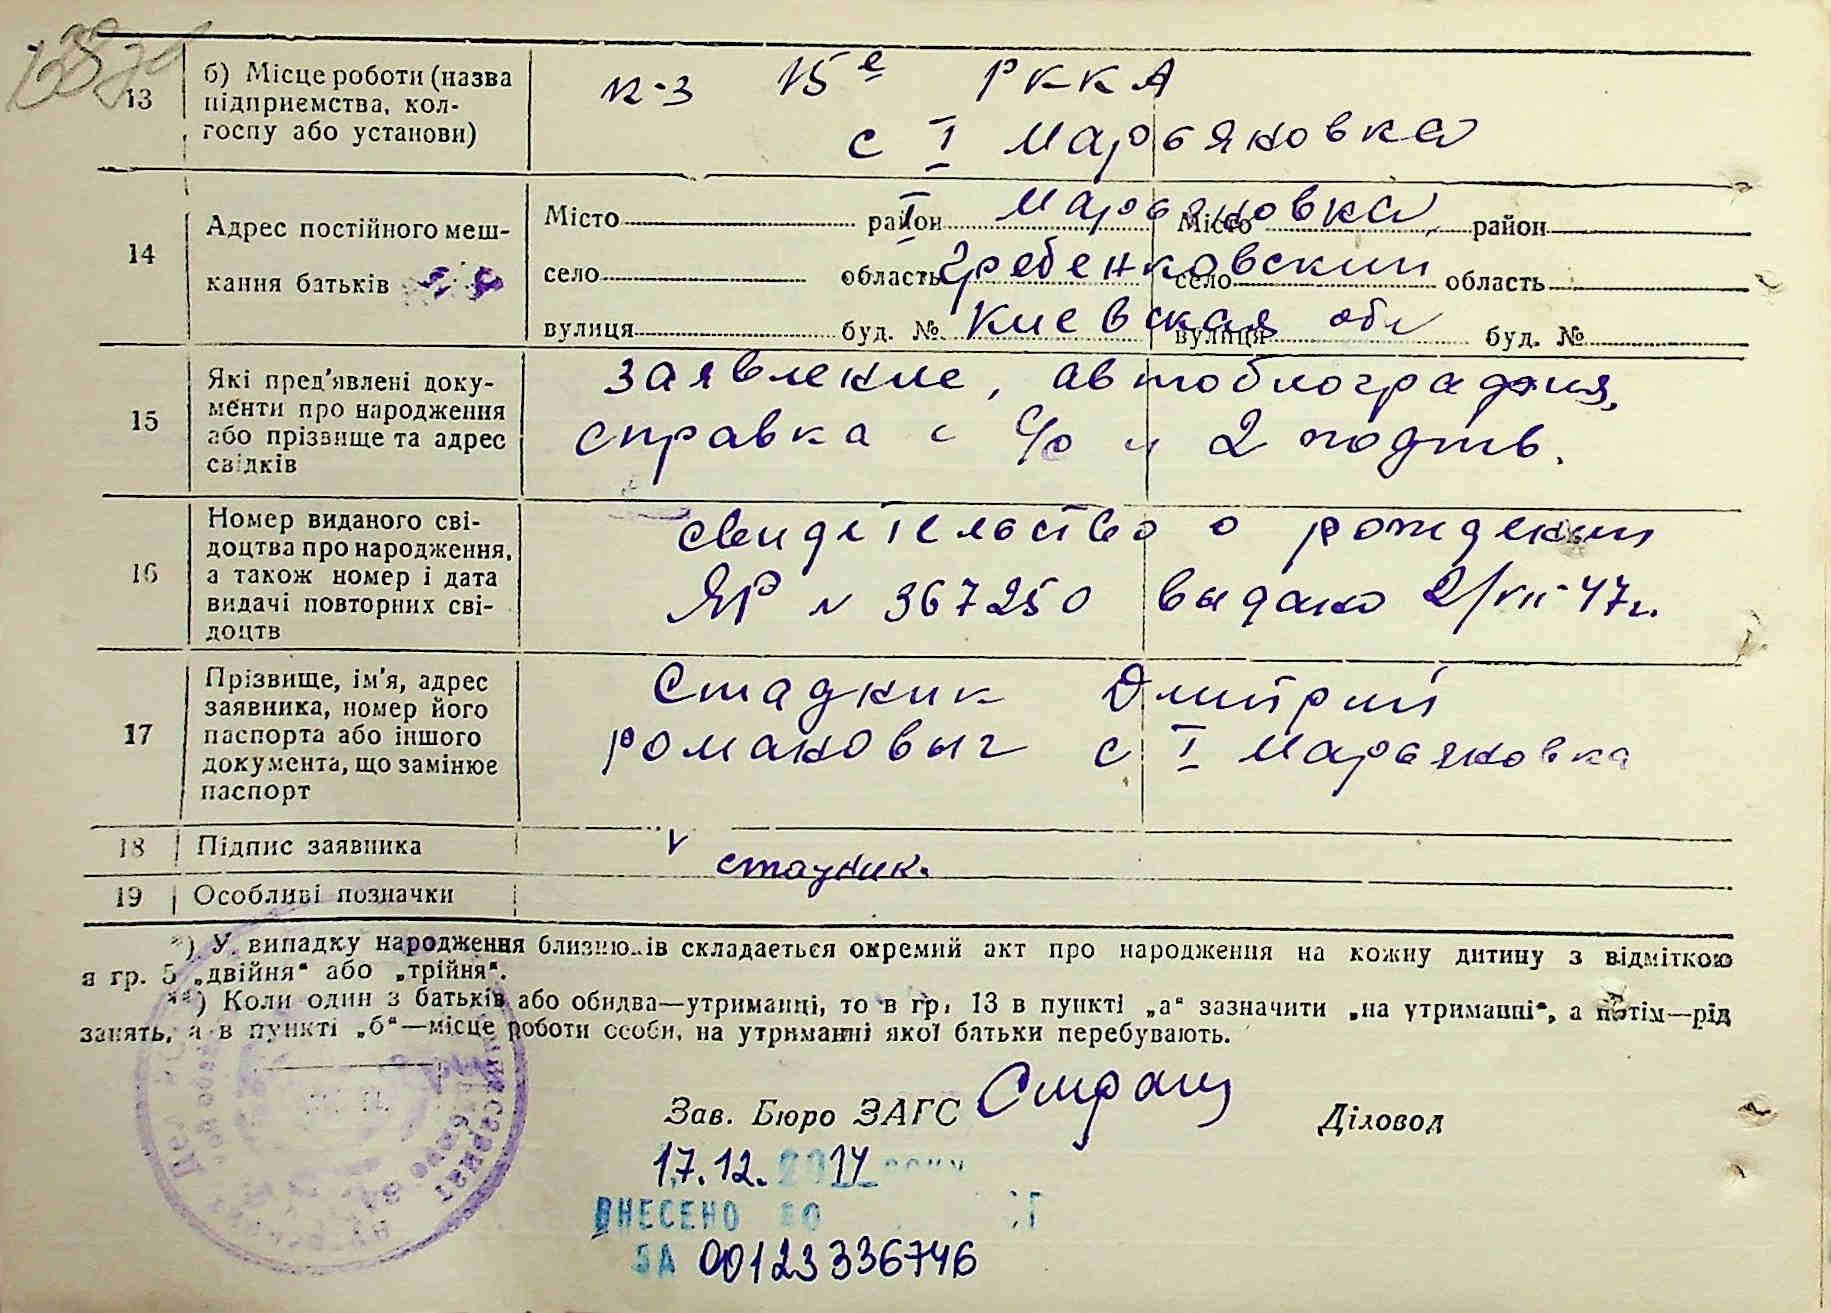 13
б) Місце роботи (назва
підприємства, кол-
госпу або установи)
к-з 15е РККА
с I Марьяновка
14
Адрес постійного меш-
кання батьків
Місто район I Марьяновка Місто район
село область Гребенковский село область
вулиця буд. № Киевская обл вулиця буд. №
15
Які пред'явлені доку-
менти про народження
або прізвище та адрес
свідків
заявление, автобиография,
справка с с/с и 2 подтв.
16
Номер виданого сві-
доцтва про народження,
а також номер і дата
видачі повторних сві-
доцтв
свидетельство о рождении
ЯР № 367250 выдано 2/VII-47г.
17
Прізвище, ім'я, адрес
заявника, номер його
паспорта або іншого
документа, що замінює
паспорт
Стадник Дмитрий
романовыч с I Марьяновка
18 Підпис заявника
V стадник.
19 Особливі позначки
*) У випадку народження близнюків складається окремий акт про народження на кожну дитину з відміткою
в гр. 5 „двійня“ або „трійня“.
**) Коли один з батьків або обидва—утриманці, то в гр. 13 в пункті „а“ зазначити „на утриманні“, а потім—рід
занять, а в пункті „б“—місце роботи особи, на утриманні якої батьки перебувають.
Зав. Бюро ЗАГС
Діловод
17.12. 2014 року
ВНЕСЕНО ДО
ЗА 00123336746